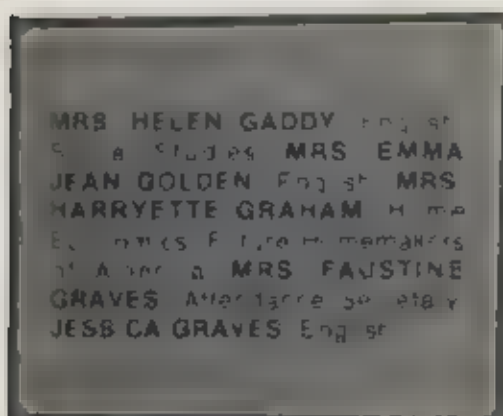 MRS HELEN GADDY English
Social Studies MRS EMMA
JEAN GOLDEN English MRS
HARRYETTE GRAHAM Home
Economics Future Homemakers
of America MRS FAUSTINE
GRAVES Attendance Secretary
JESSICA GRAVES English